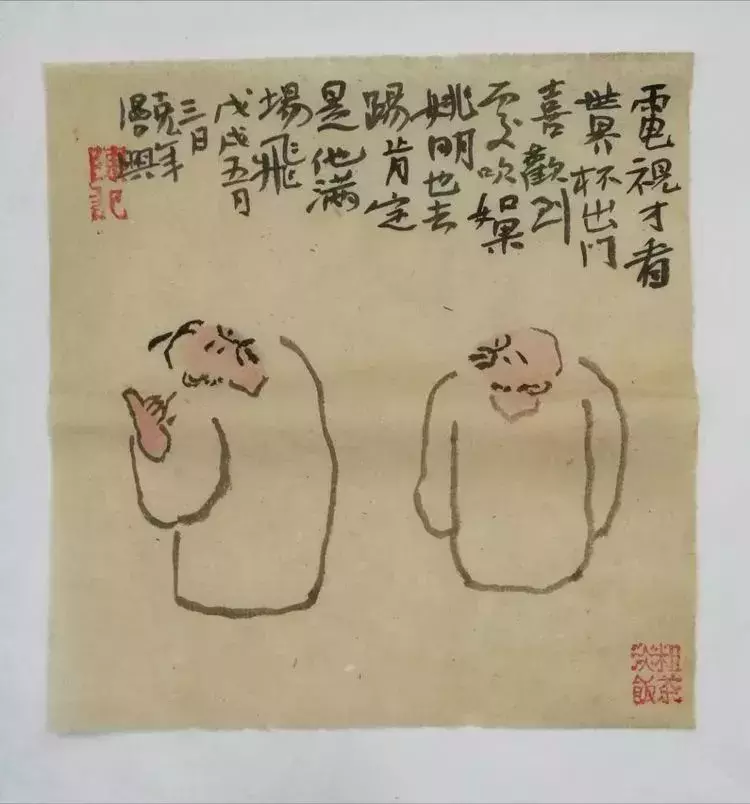 電視才看
世界杯出门
喜歡到
處吹如果
姚明也去
踢肯定
是他滿
場飛
戊戌五月
三日
年
興
陳記
粗茶
淡飯